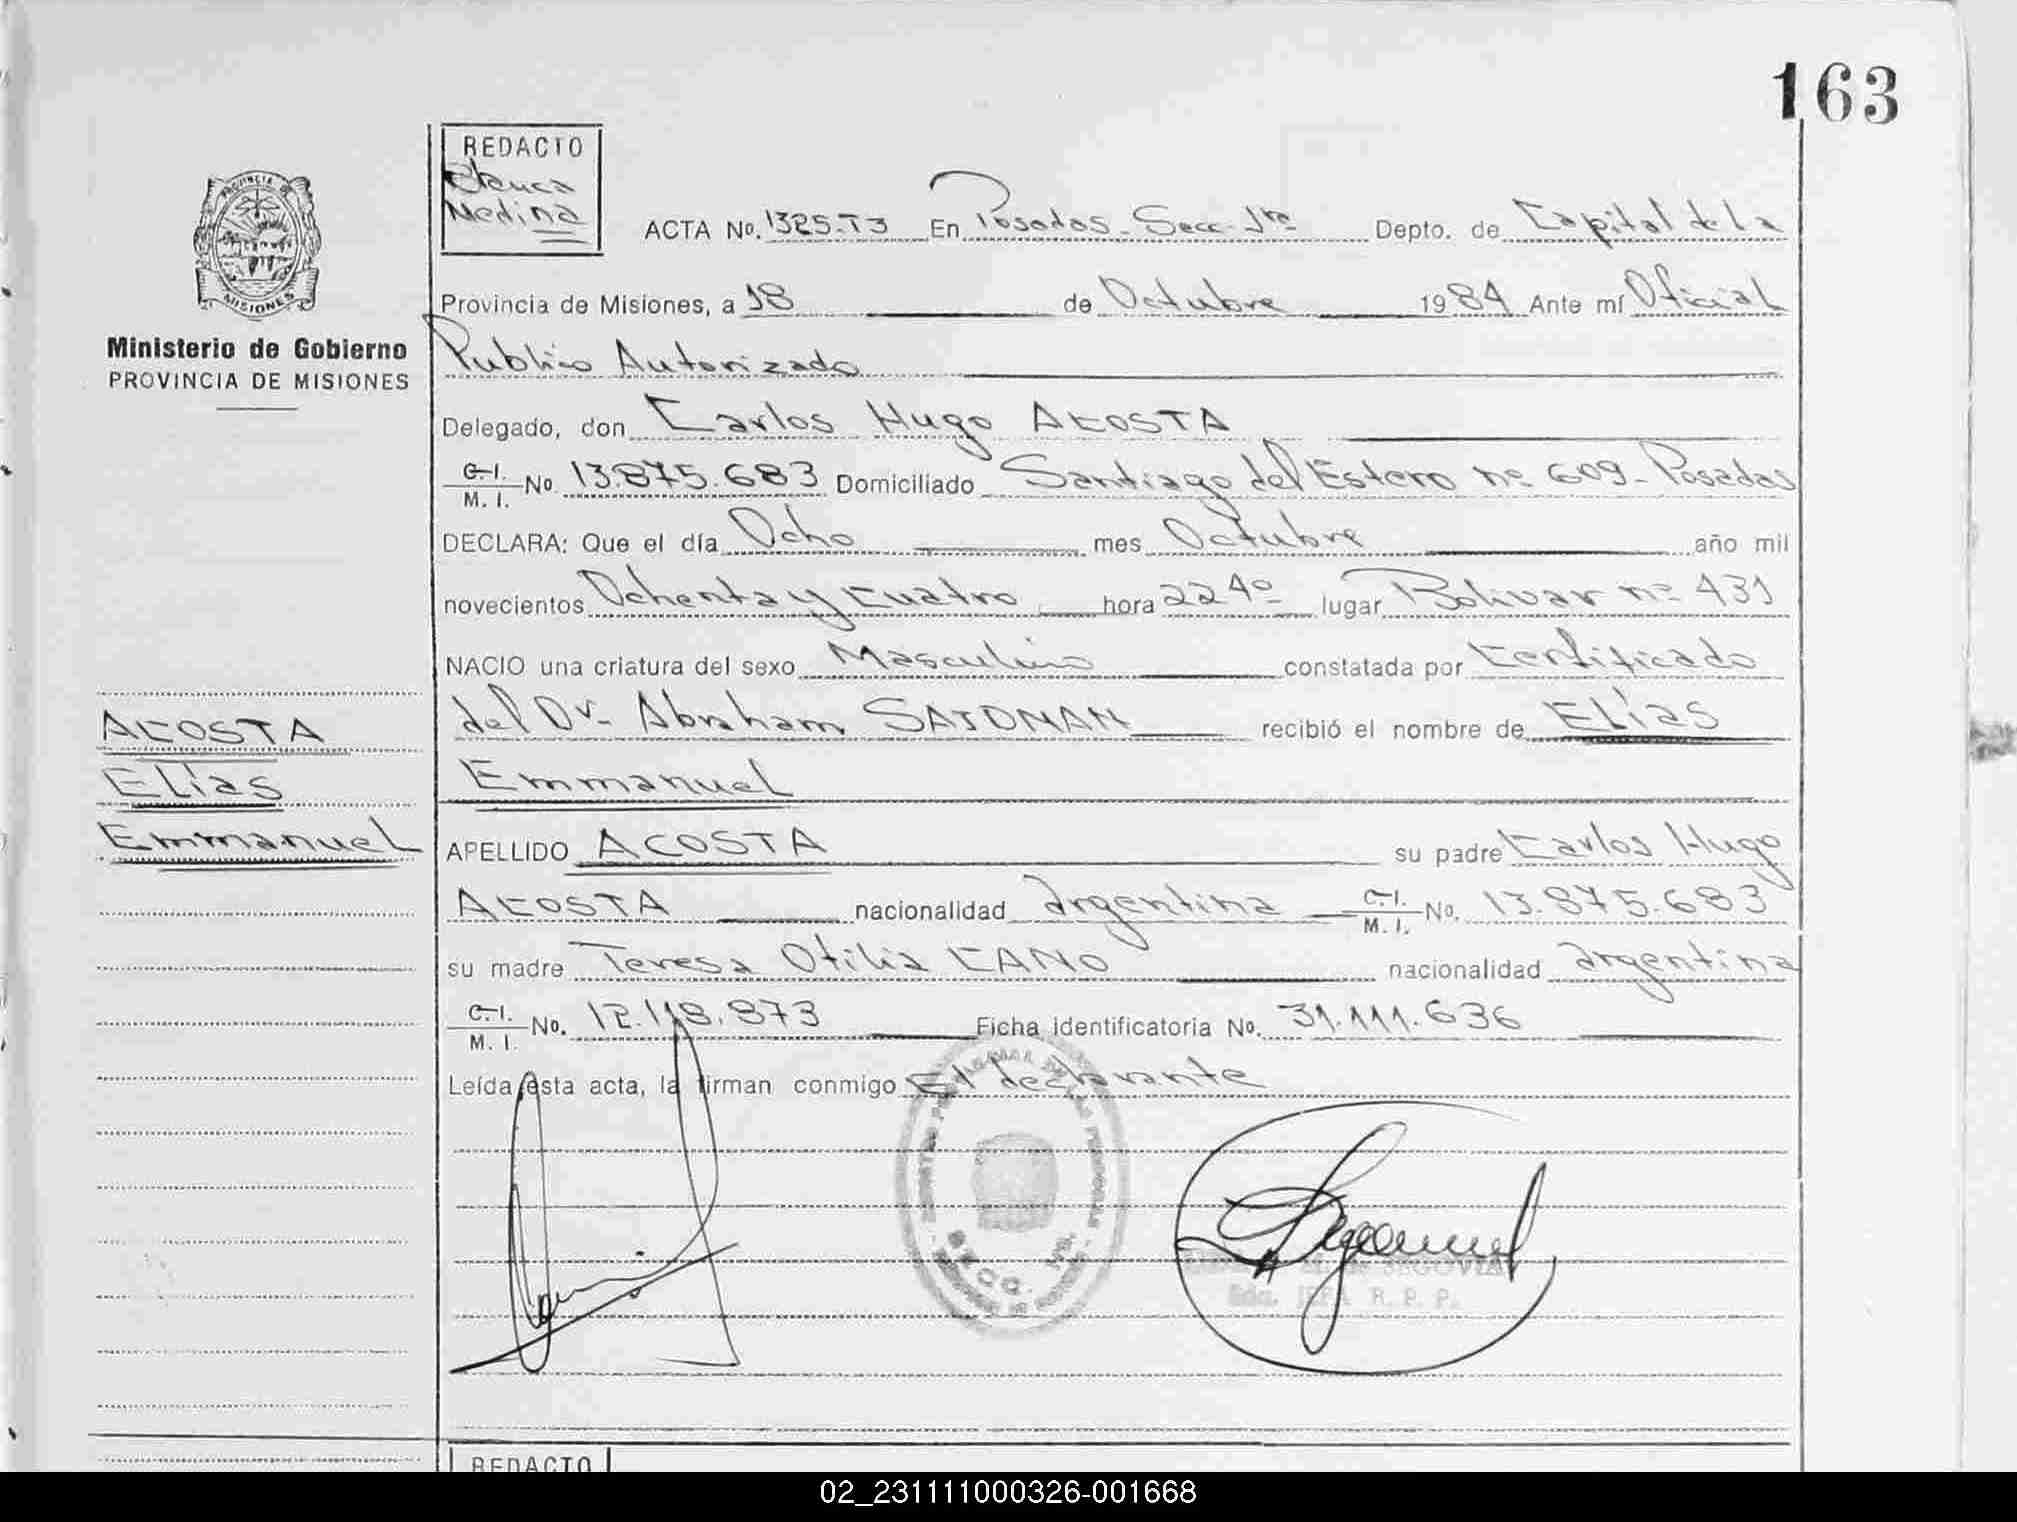 163
REDACTO
Medina
ACTA No. 1325-T3 En Posadas - Secc. 1ra Depto. de Capital de la
PROVINCIA DE
MISIONES
Provincia de Misiones, a 18 de Octubre 1984 Ante mí Oficial
Ministerio de Gobierno
PROVINCIA DE MISIONES
Publico Autorizado
Delegado, don Carlos Hugo ACOSTA
C. I. M. I. No 13.875.683 Domiciliado Santiago del Estero no 609 - Posadas
DECLARA: Que el día Ocho mes Octubre año mil
novecientos Ochenta y cuatro hora 22 40 lugar Bolivar no 431
NACIO una criatura del sexo Masculino constatada por Certificado
del Dr. Abraham recibió el nombre de Elías
Emmanuel
ACOSTA
Elías
Emmanuel
APELLIDO ACOSTA su padre Carlos Hugo
ACOSTA nacionalidad argentina C. I. M. I. No. 13.875.683
su madre Teresa Otilia CANO nacionalidad argentina
C. I. M. I. No. 12.118.873 Ficha identificatoria No. 31.111.636
Leída esta acta, la firman conmigo El declarante
SECC. 1ra.
M. de SEGOVIA
JEFA R. P. P.
REDACTO
02_231111000326-001668